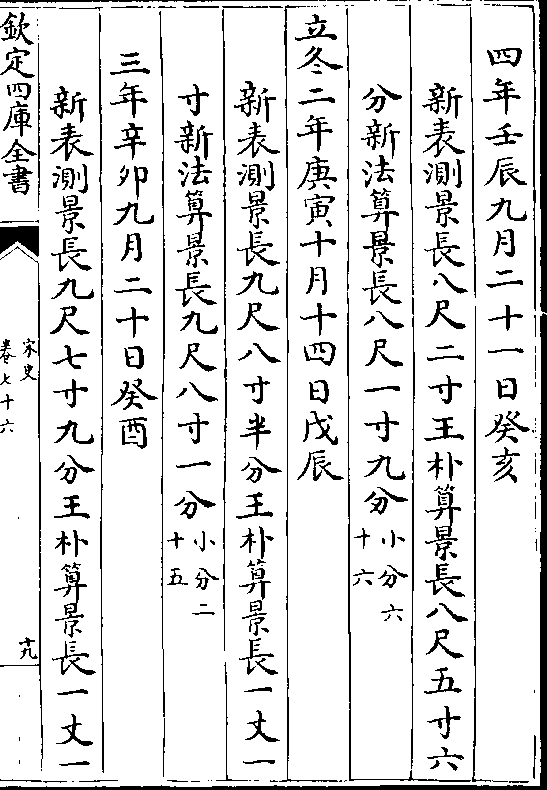 四年壬辰九月二十一日癸亥
新表測景長八尺二寸王朴算景長八尺五寸六
分新法算景長八尺一寸九分小分六十六
立冬二年庚寅十月十四日戊辰
新表測景長九尺八寸半分王朴算景長一丈一
寸新法算景長九尺八寸一分小分二十五
三年辛卯九月二十日癸酉
新表測景長九尺七寸九分王朴算景長一丈一
欽定四庫全書
宋史
卷七十六
十九